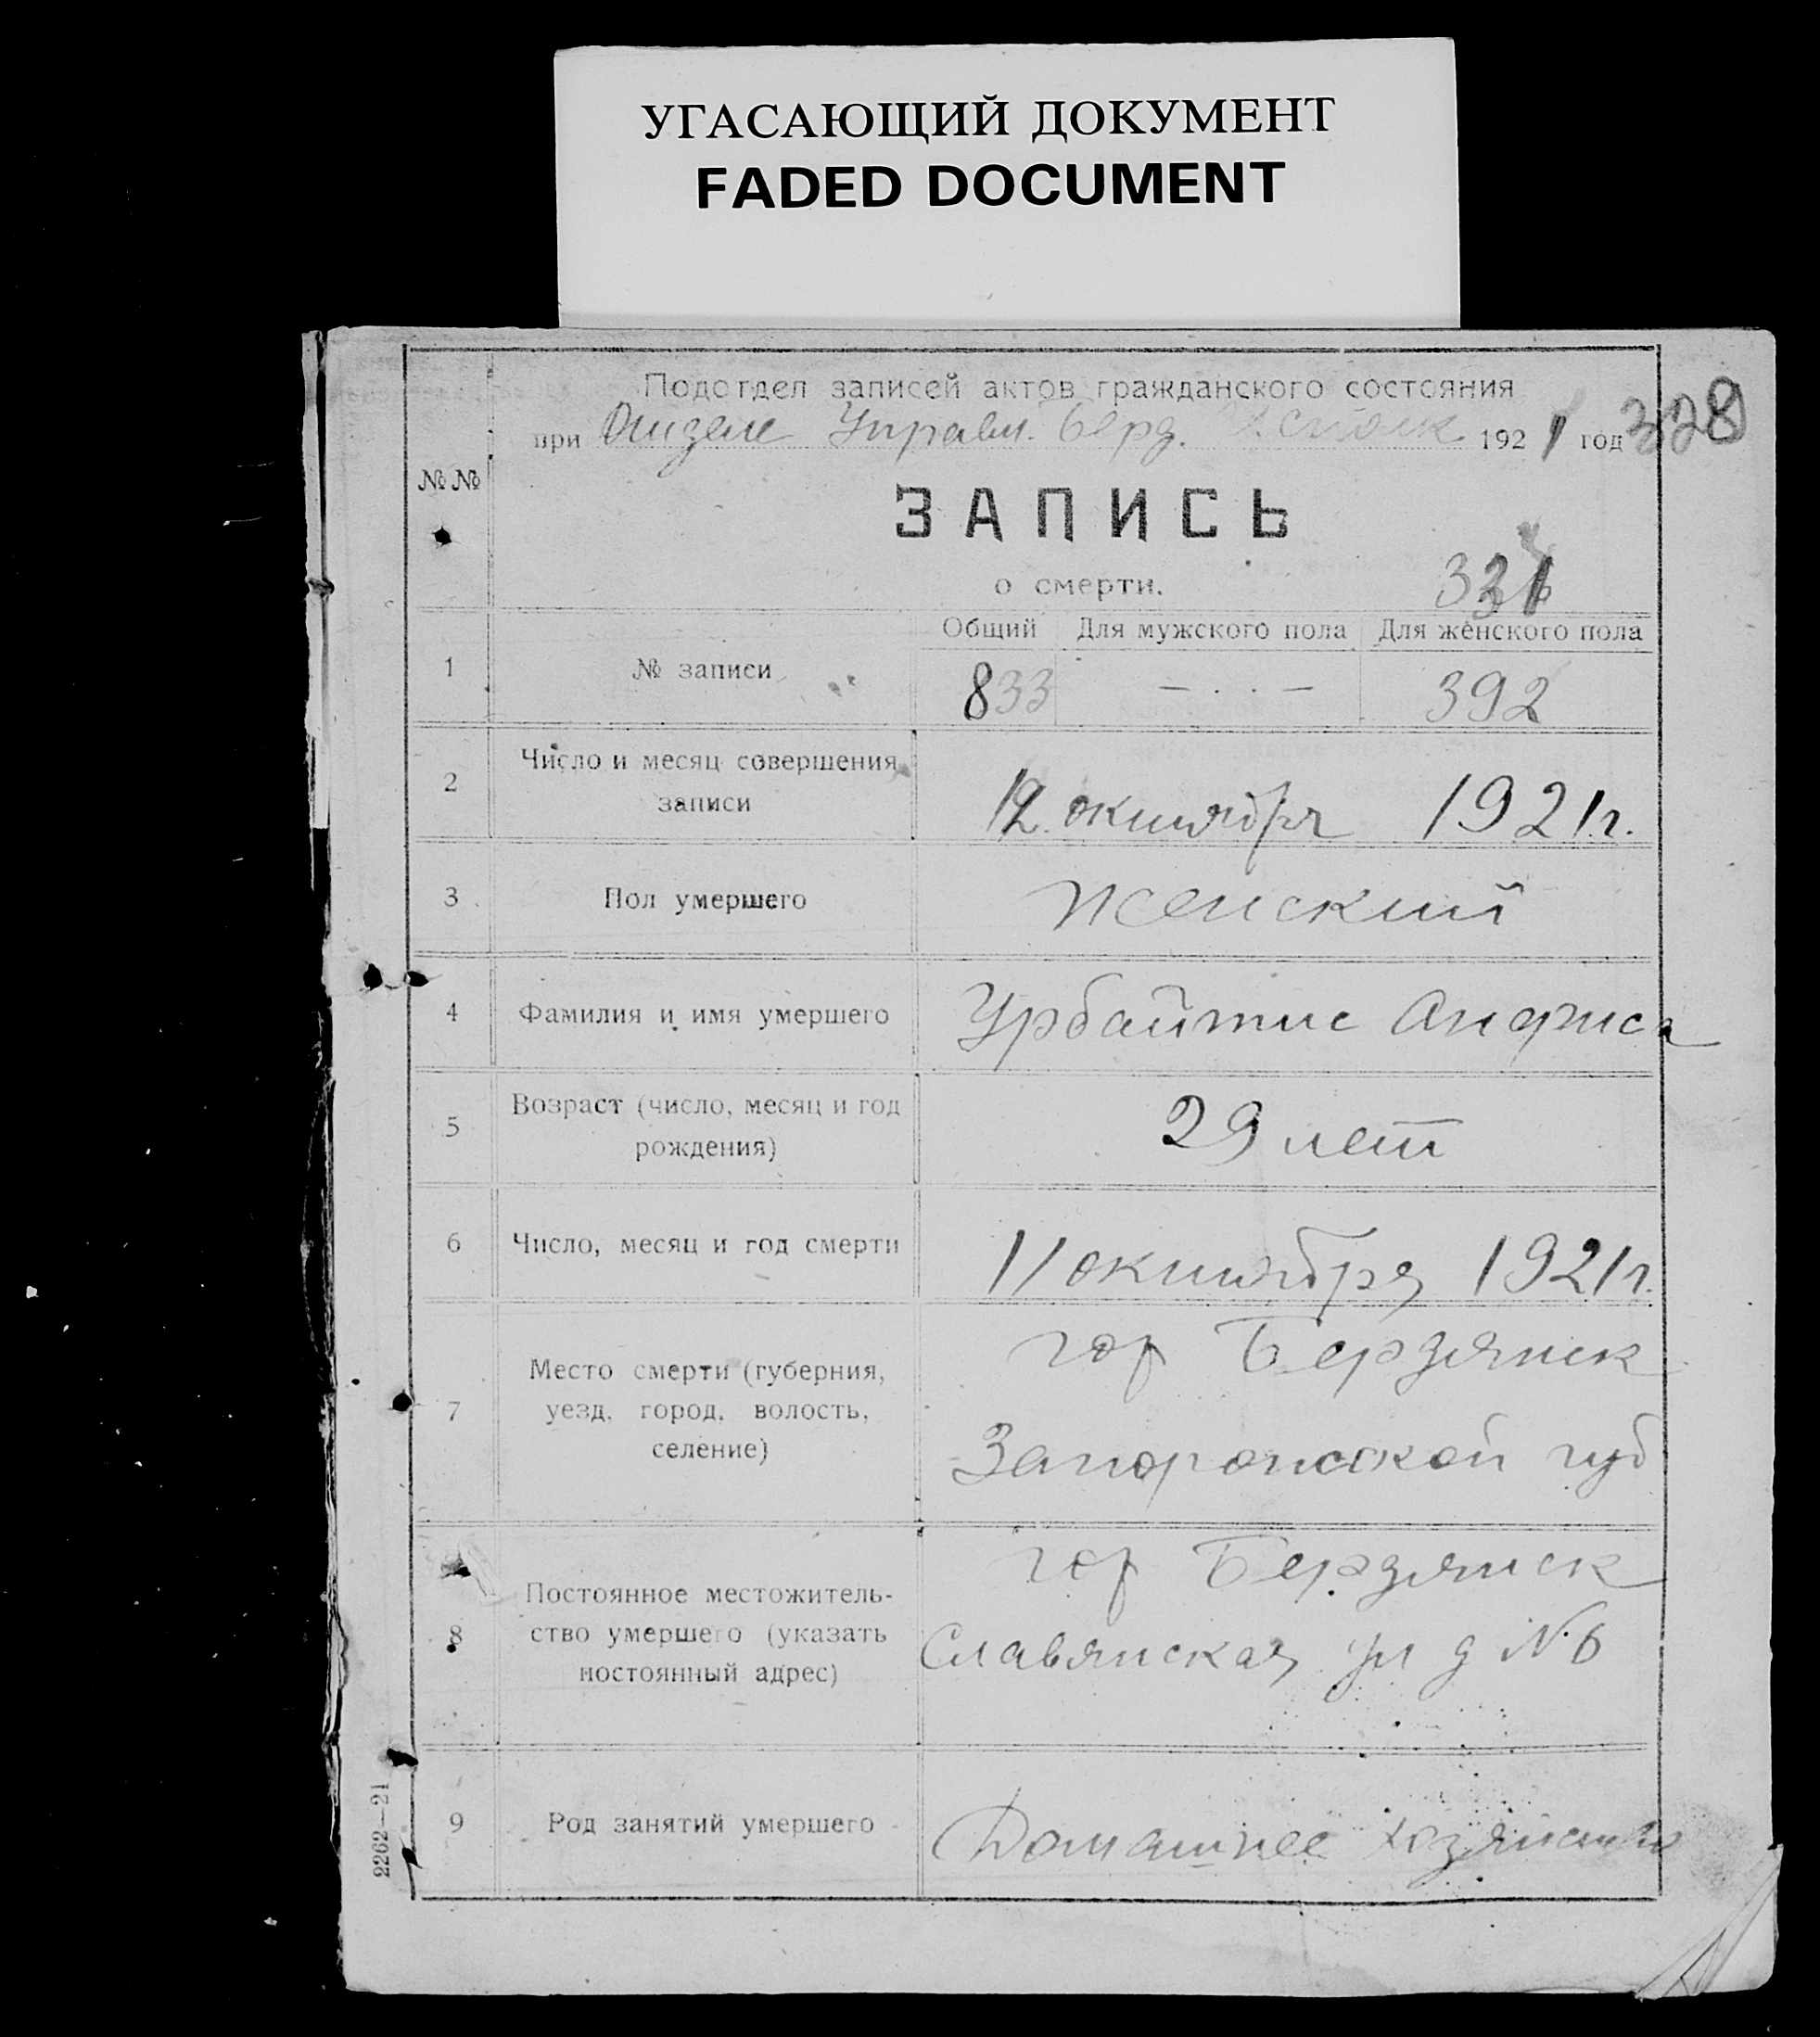 УГАСАЮЩИЙ ДОКУМЕНТ
FADED DOCUMENT
Подотдел записей актов гражданского состояния
при Отделе Управл. Берд. 1921 год
328
№№
ЗАПИСЬ
о смерти.
Общий Для мужского пола Для женского пола
1 № записи 833 — . . — 392
2 Число и месяц совершения
записи
12 октября 1921 г.
3 Пол умершего Женский
4 Фамилия и имя умершего Урбайтис
5 Возраст (число, месяц и год
рождения)
29 лет
6 Число, месяц и год смерти 11 октября 1921 г.
7 Место смерти (губерния,
уезд, город, волость,
селение)
гор Бердянск
Запорожской губ
8 Постоянное местожитель-
ство умершего (указать
постоянный адрес)
гор Бердянск
Славянская ул д № 6
9 Род занятий умершего Домашнее хозяйство
2262—21